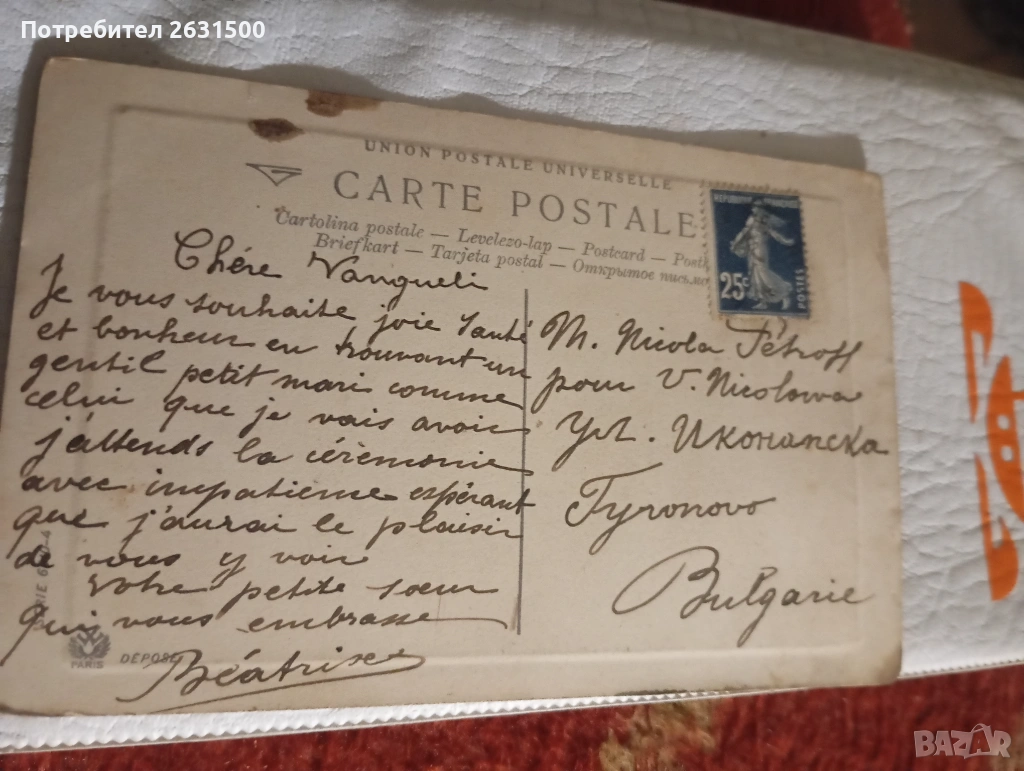 Потребител 2631500
UNION POSTALE UNIVERSELLE
CARTE POSTALE
Cartolina postale — Levelezo-lap — Postcard —
Briefkart — Tarjeta postal — Открытое
REPUBLIQUE FRANÇAISE
25c
POSTES
Chére Vangueli
Je vous souhaite joie santé
et bonheur en trouvant un
gentil petit mari comme
celui que je vais avoir
j'attends la cérémonie
avec impatience espérant
que j'aurai le plaisir
de vous y voir
Votre petite sœur
qui vous embrasse
Béatrixe
M. Nicola Pétroff
pour V. Nicolowa
ул. Иконапска
Tyronovo
Bulgarie
PARIS
DEPOSE
BAZAR